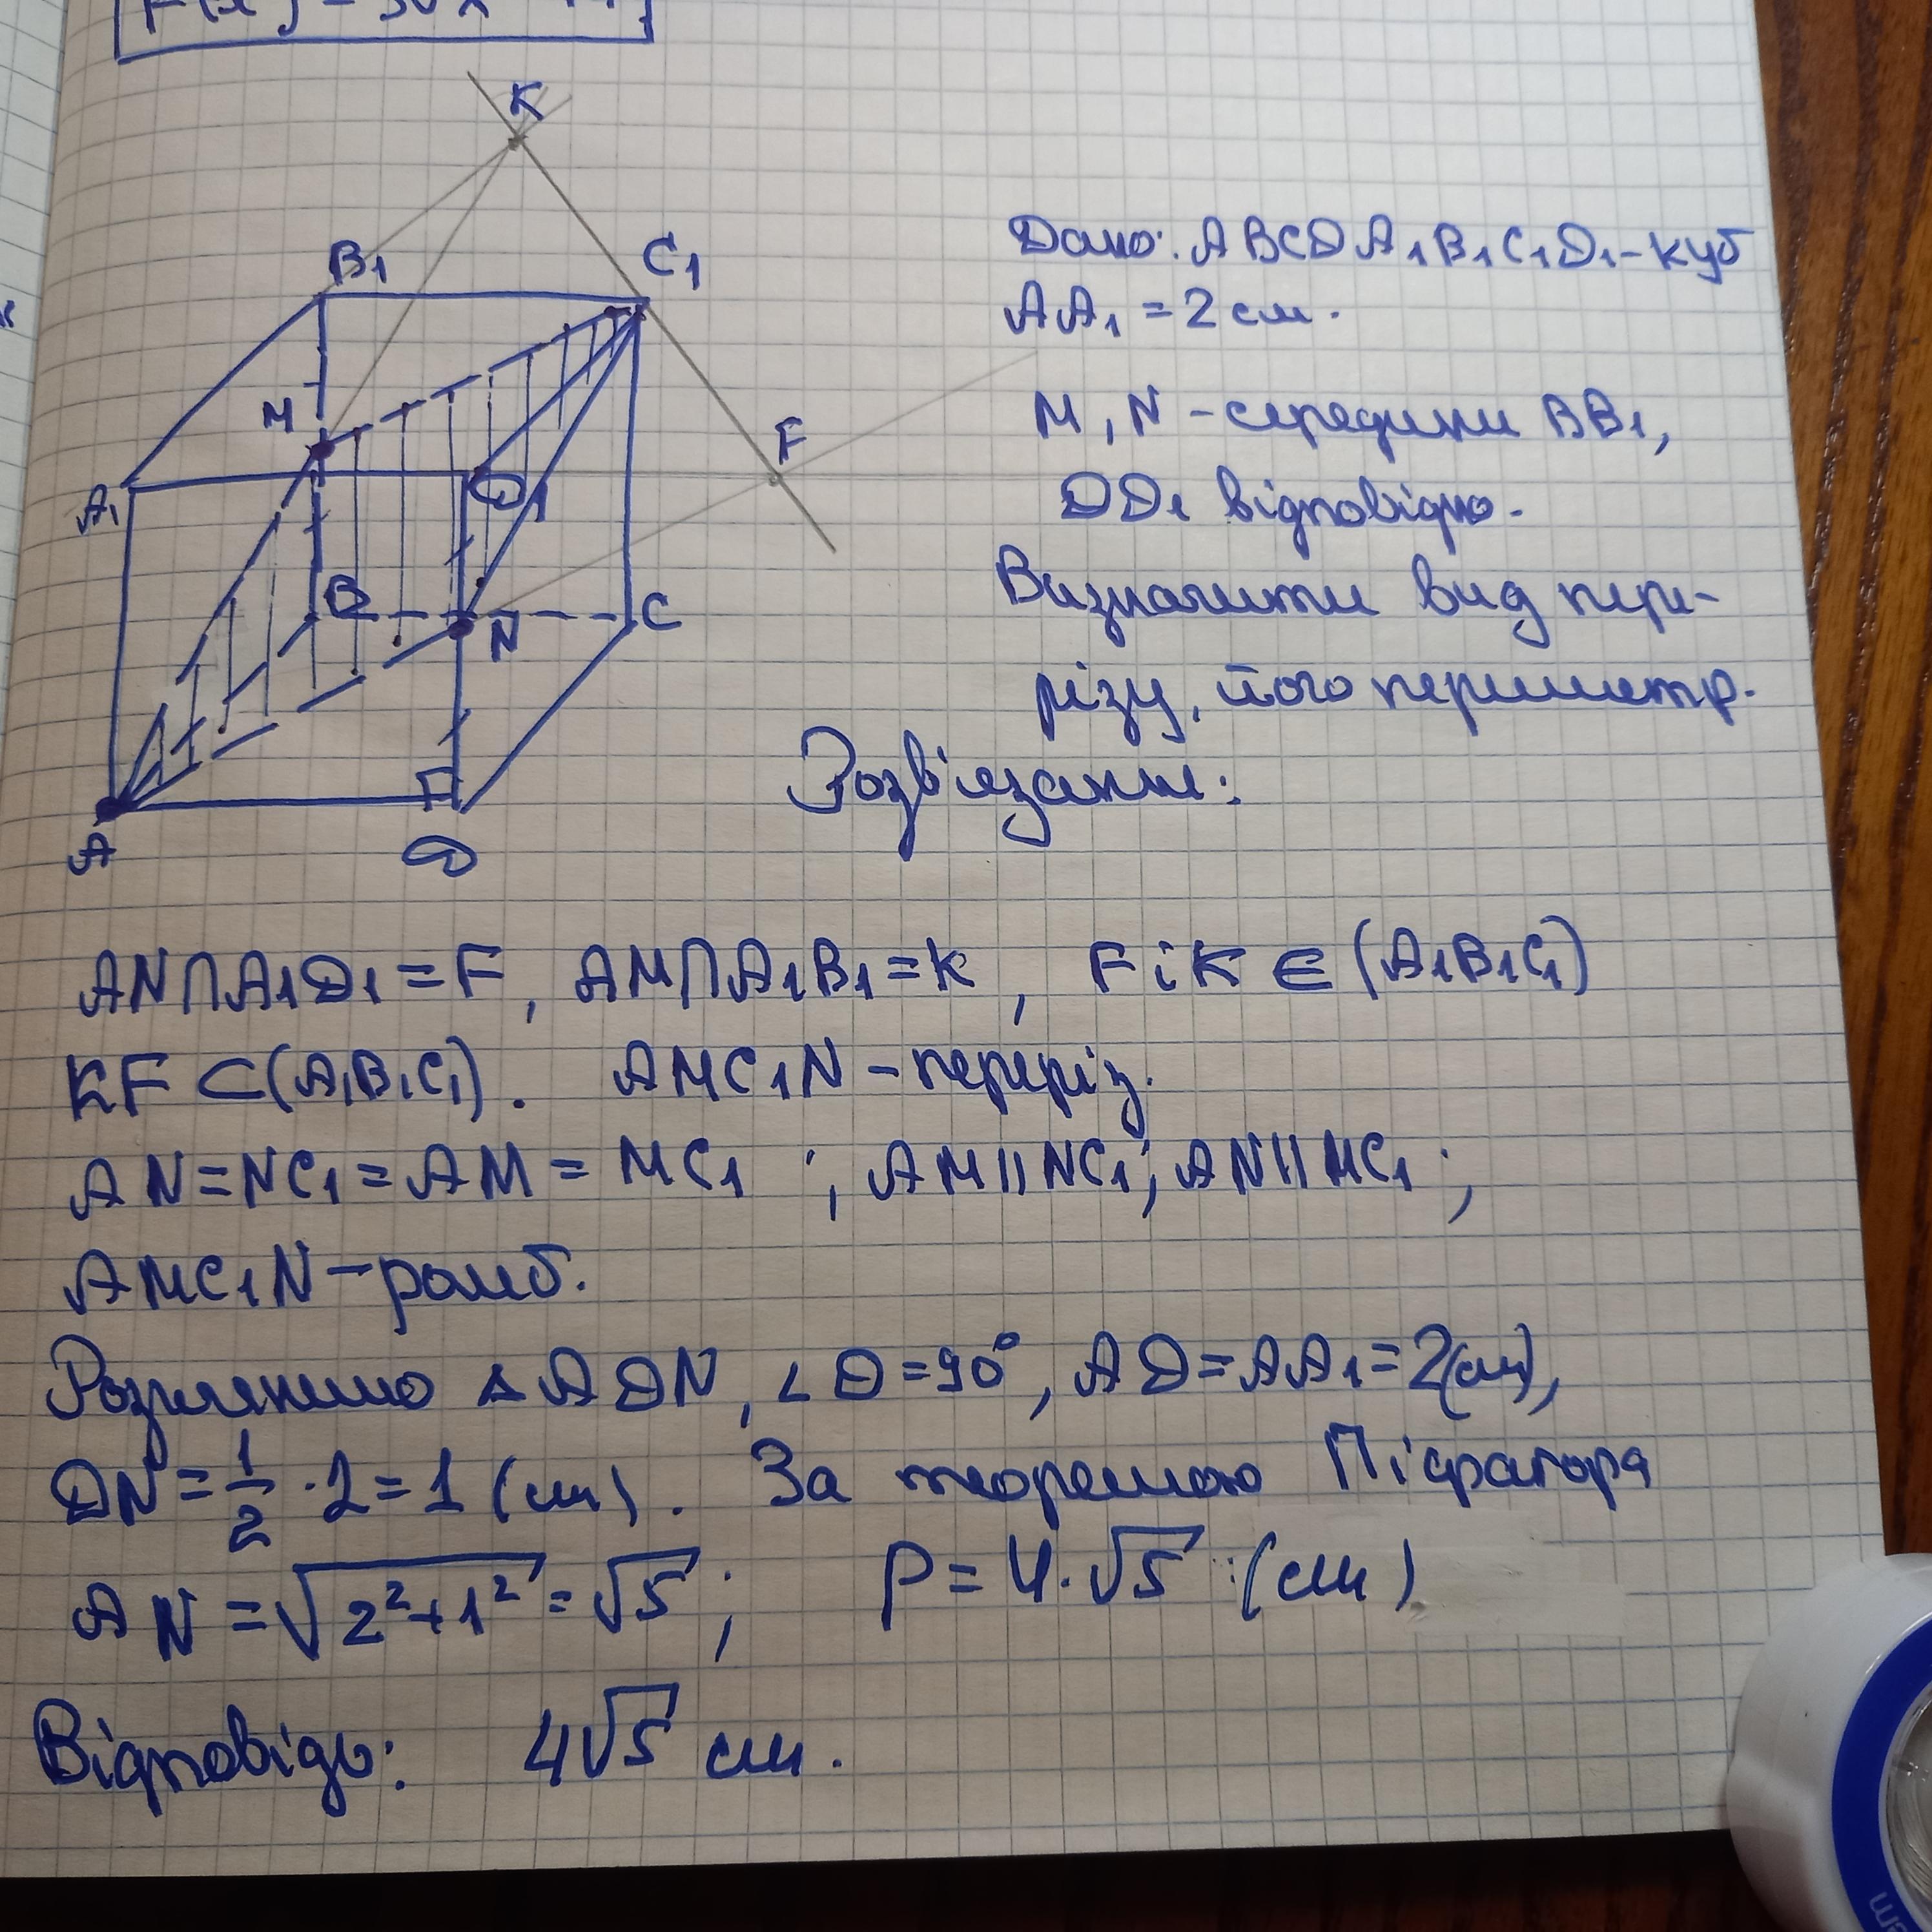 K
B₁
C₁
M
F
A₁
D₁
B
N
C
A
D
Дано: ABCDA₁B₁C₁D₁ - куб
AA₁ = 2 см.
M, N - середини BB₁,
DD₁ відповідно.
Визначити вид пере-
різу, його периметр.
Розв'язання:
AN∩A₁D₁ = F, AM∩A₁B₁ = K, F і K ∈ (A₁B₁C₁)
KF ⊂ (A₁B₁C₁). AMC₁N - переріз.
AN = NC₁ = AM = MC₁ ; AM || NC₁; AN || MC₁ ;
AMC₁N - ромб.
Розглянемо △ADN, ∠D = 90°, AD = AA₁ = 2(см),
DN = 1/2 · 2 = 1 (см). За теоремою Піфагора
AN = √(2² + 1²) = √5 ; P = 4 · √5 (см)
Відповідь: 4√5 см.